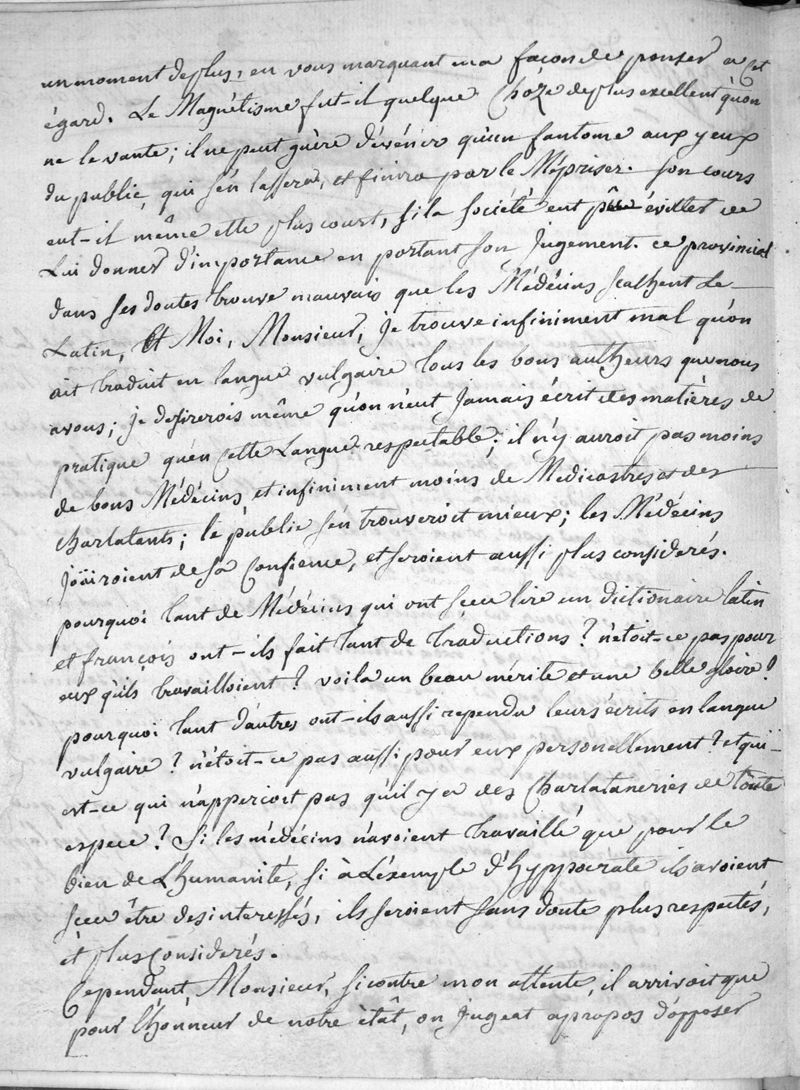 un moment de plus, en vous marquant ma façon de penser a cet
égard. Le Magnétisme fut-il quelque Chôze de plus excellent qu'on
ne le vante; il ne peut guère dévénir qu'un fantome aux yeux
du public, qui s'en lassera, et finira par le Mépriser. son cours
eut-il même été plus court, si la société eut pû éviter de
Lui donner d'importance en portant son jugement. ce provincial
dans ses doutes trouve mauvais que les Médécins scachent Le
Latin, Et Moi, Monsieur, je trouve infiniment mal qu'on
ait traduit en langue vulgaire tous les bons autheurs que nous
avons; je desirerois même qu'on n'eut jamais écrit des matières de
pratique qu'en Cette Langue respectable; il n'y auroit pas moins
de bons Médécins, et infiniment moins de Medicastres et des
charlatants; le public s'en trouveroit mieux; les Médécins
joüiroient de sa Confience, et seroient aussi plus considerés.
pourquoi tant de Médécins qui ont sceu lire un dictionaire latin
et françois ont-ils fait tant de traductions? n'etoit-ce pas pour
eux qu'ils travailloient? voila un beau mérite et une belle gloire!
pourquoi tant d'autres ont-ils aussi rependu leurs écrits en langue
vulgaire? n'étoit-ce pas aussi pour eux personellement? et qui-
est-ce qui n'apperçoit pas qu'il y a des Charlataneries de toute
espece? Si les médécins n'avoient travaillé que pour le
bien de L'humanité, si à L'éxemple d'hyppocrate ils avoient
sceu être desinteressés, ils seroient sans doute plus respectés,
et plus Considerés.
Cependant Monsieur, si contre mon attente, il arrivoit que
pour l'hônneur de notre êtât, on jugeat apropos d'opposer